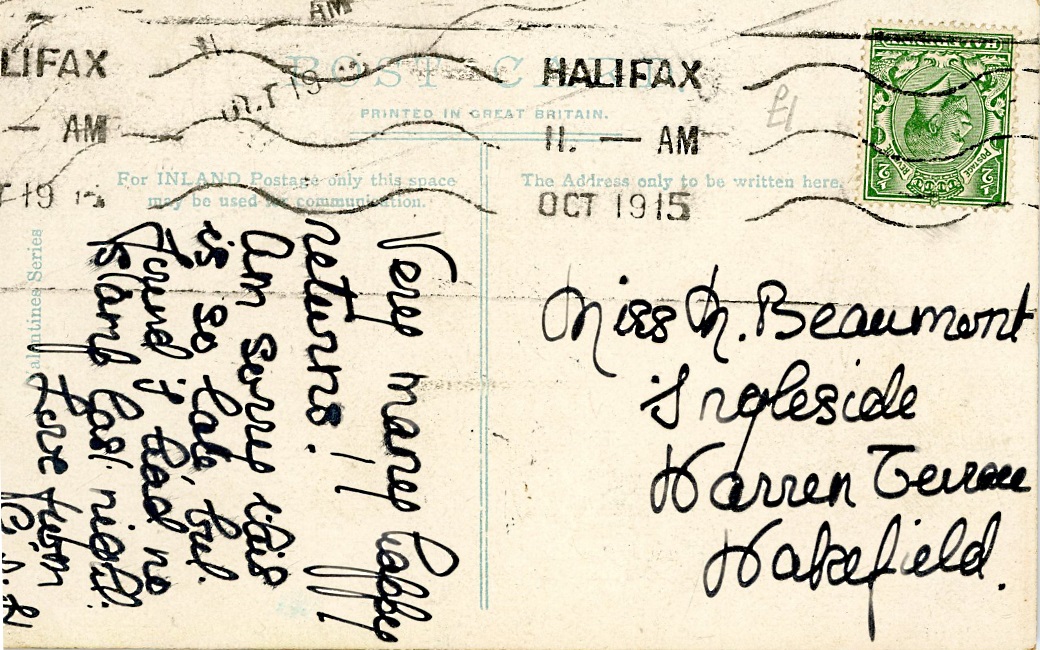 AM
LIFAX
HALIFAX
POST CARD.
PRINTED IN GREAT BRITAIN.
£1
AM
11. — AM
OCT 19
OCT 1915
T 19 15
HALFPENNY
POSTAGE
½ ½
For INLAND Postage only this space
may be used for communication.
The Address only to be written here.
Valentines Series
Very many happy
returns!!!
Am sorry this
is so late, but
found I had no
stamp last night.
Love from
Miss M. Beaumont
Ingleside
Warren Terrace
Wakefield.